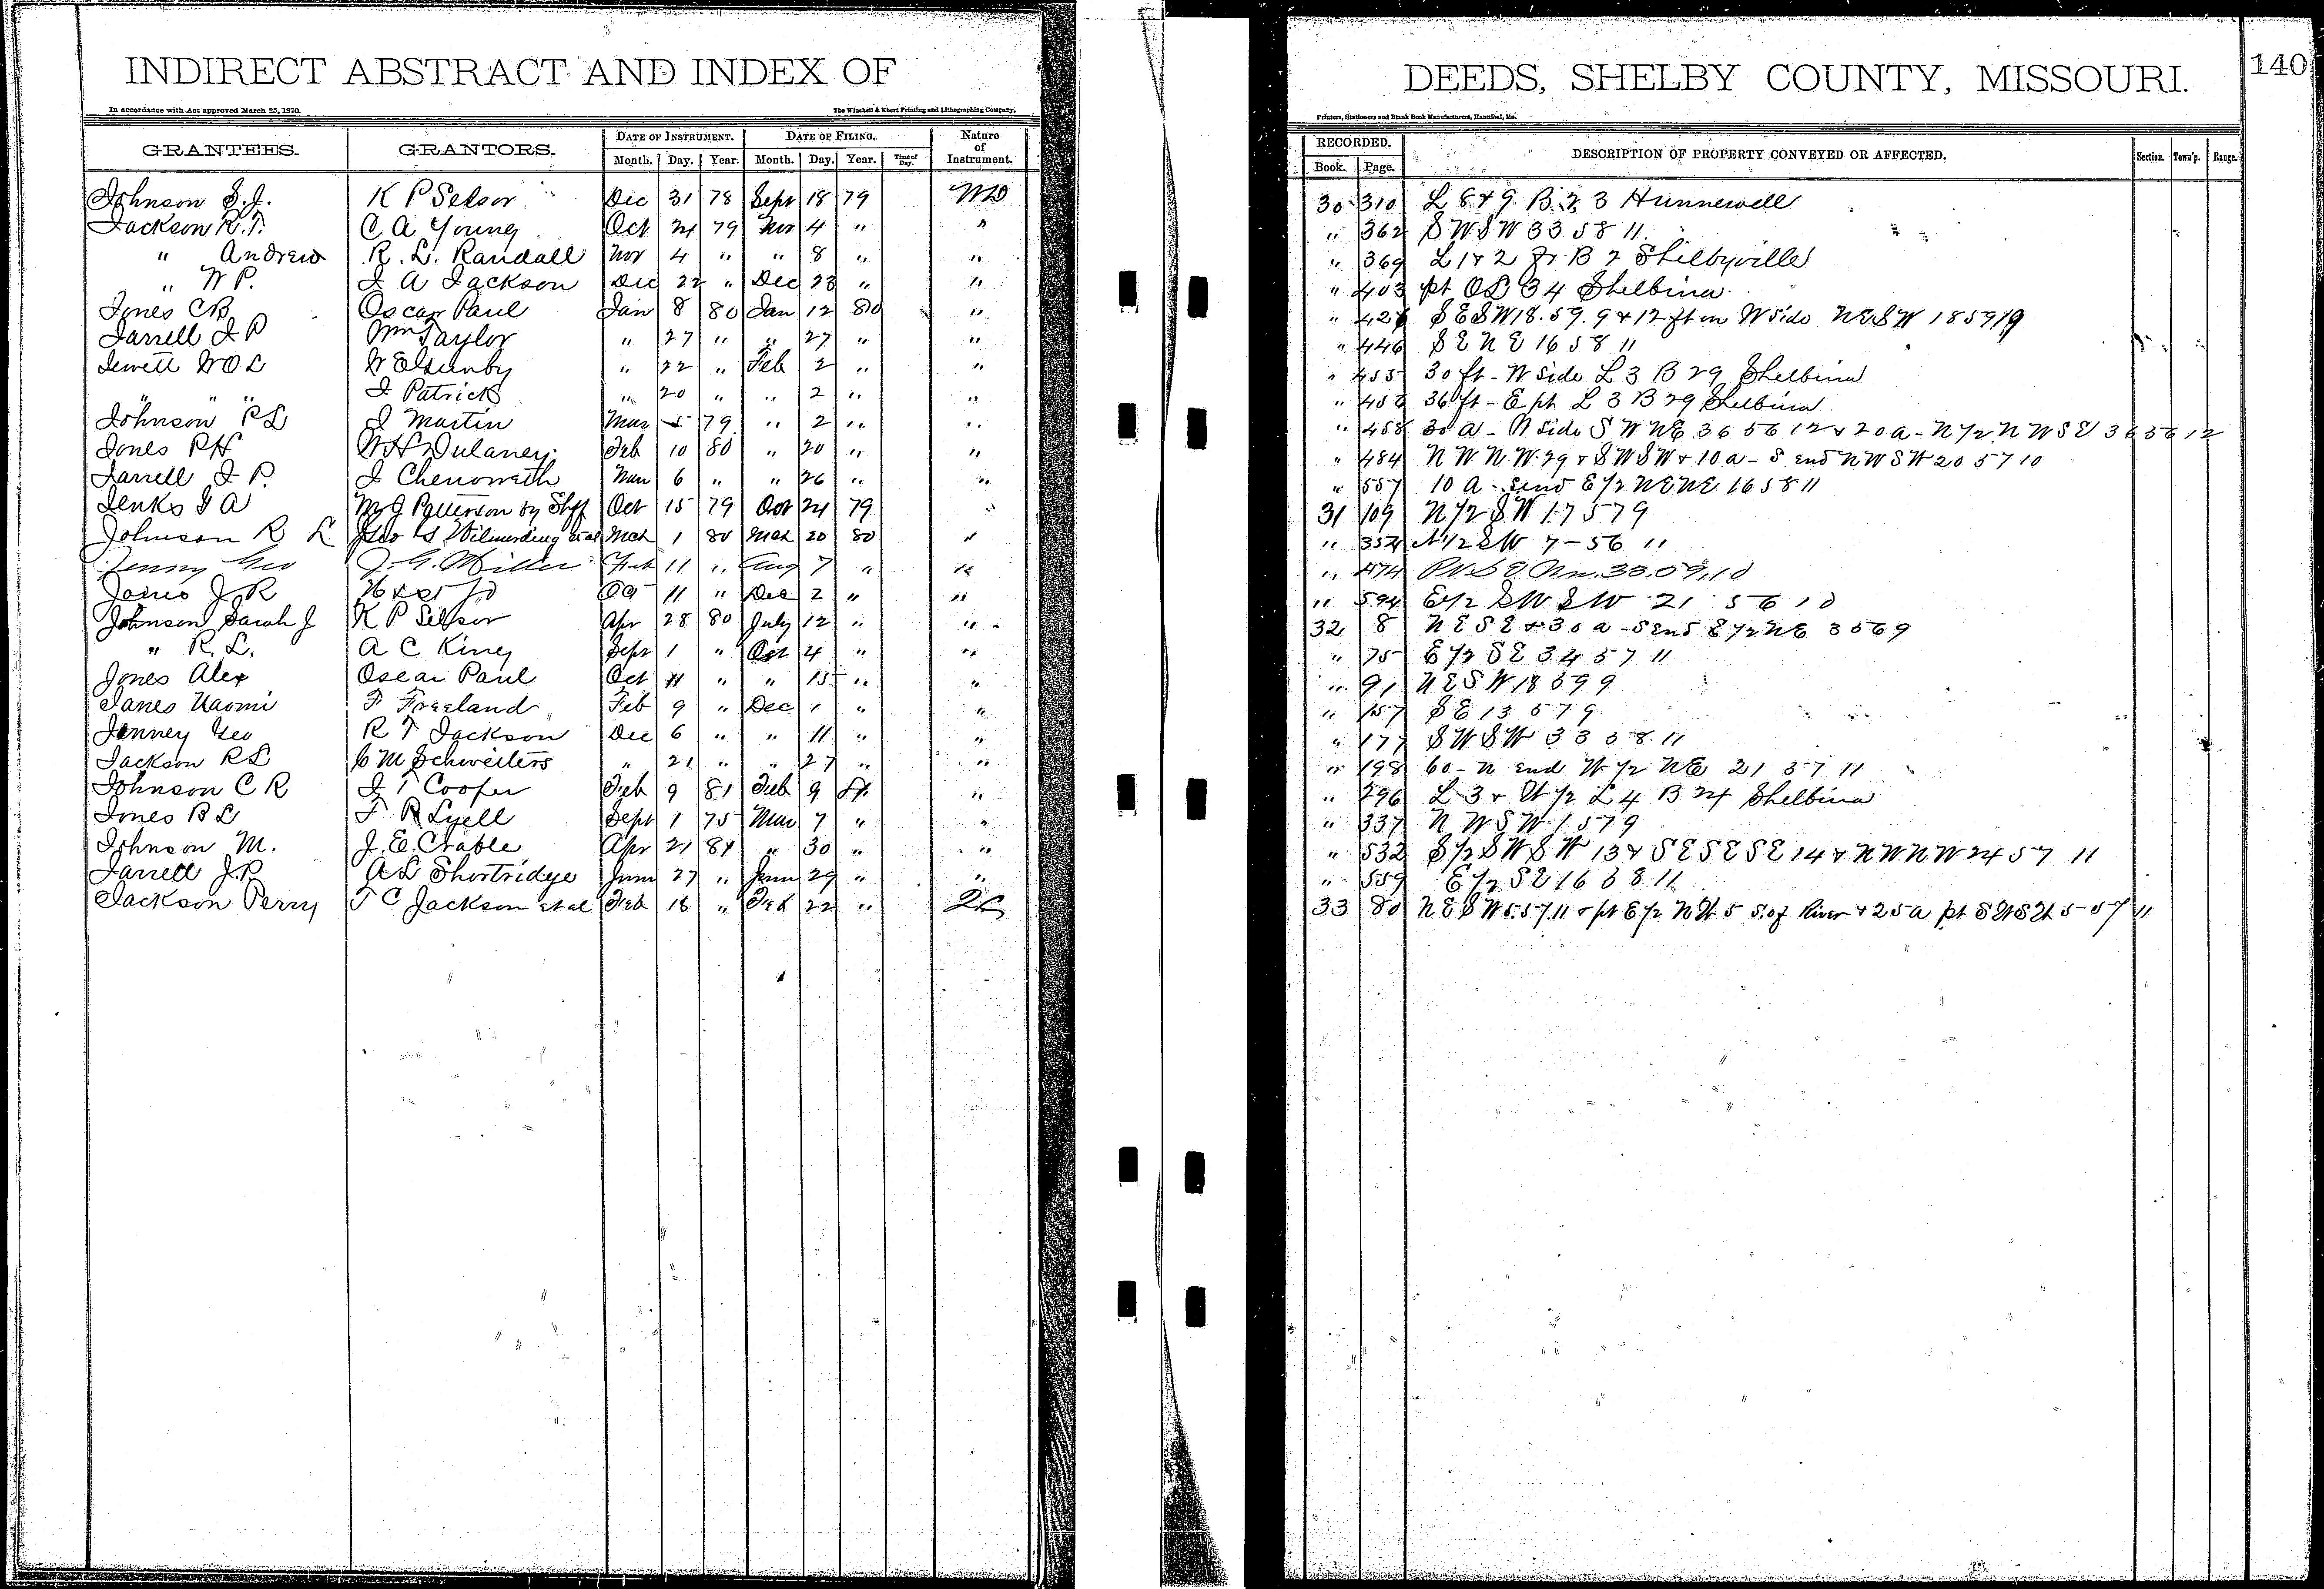 INDIRECT ABSTRACT AND INDEX OF
In accordance with Act approved March 25, 1870. The Winchell & Ebert Printing and Lithographing Company,
GRANTEES. GRANTORS. DATE OF INSTRUMENT. DATE OF FILING. Nature of Instrument.
Month. Day. Year. Month. Day. Year. Time of Day.
Johnson S.J. K P Selsor Dec 31 78 Sept 18 79 WD
Jackson R.T. C A Young Oct 24 79 Nov 4 " "
" Andrew R. L. Randall Nov 4 " " 8 " "
" W P. J A Jackson Dec 22 " Dec 23 " "
Jones C B Oscar Paul Jan 8 80 Jan 12 80 "
Jarrell J P Wm Taylor " 27 " " 27 " "
Jewett W O L " 22 " Feb 2 " "
" " " J Patrick " 20 " " 2 " "
Johnson R L J Martin Mar 5 79 " 2 " "
Jones R H W H Dulaney Feb 10 80 " 20 " "
Jarrell J P. J Chenoweth Mar 6 " " 26 " "
Jenks J A M J Patterson by Shff Oct 15 79 Oct 24 79 "
Johnson R L Geo G Wilmerding et al Mch 1 80 Mch 20 80 "
Jenny Geo J. G. Miller Feb 11 " Aug 7 " "
Jones J R 11 " Dec 2 " "
Johnson Sarah J K P Selsor Apr 28 80 July 12 " "
" R. L. A C King Sept 1 " Oct 4 " "
Jones Alex Oscar Paul Oct 11 " " 15 " "
Janes Naomi F Freeland Feb 9 " Dec 1 " "
Janney Geo R T Jackson Dec 6 " " 11 " "
Jackson R L C M Schweiters " 21 " " 27 " "
Johnson C R J T Cooper Feb 9 81 Feb 9 81 "
Jones B L T R Lyell Sept 1 75 Mar 7 " "
Johnson M. J. E. Crable Apr 21 81 " 30 " "
Jarrell J.P. A L Shortridge June 27 " June 29 " "
Jackson Perry T C Jackson et al Feb 16 " Feb 22 " QC
DEEDS, SHELBY COUNTY, MISSOURI. 140
Printers, Stationers and Blank Book Manufacturers, Hannibal, Mo.
RECORDED. DESCRIPTION OF PROPERTY CONVEYED OR AFFECTED. Section. Town'p. Range.
Book. Page.
30 310 L 8 & 9 B 23 Hunnewell
" 362 S W S W 33 58 11
" 369 L 1 & 2 B 7 Shelbyville
" 403 pt O L 34 Shelbina
" 427 S E S W 18. 59. 9 & 12 ft on W side N E S W 18 59 9
" 446 S E N E 16 58 11
" 455 30 ft - W side L 3 B 29 Shelbina
" 456 36 ft - E pt L 3 B 29 Shelbina
" 458 30 a - N side S W N E 36 56 12 & 20 a - N 1/2 N W S E 36 56 12
" 484 N W N W 29 & S W S W & 10 a - S end N W S W 20 57 10
" 557 10 a - S end E 1/2 N E N E 16 58 11
31 109 N 1/2 S W 1 7 57 9
" 352 N 1/2 S W 7 - 56 11
" 474
" 594 E 1/2 S W S W 21 56 10
32 8 N E S E & 30 a - S end E 1/2 N E 35 6 9
" 75 E 1/2 S E 34 57 11
" 91 N E S W 18 59 9
" 157 S E 13 57 9
" 177 S W S W 33 58 11
" 198 60 - N end W 1/2 N E 21 57 11
" 296 L 3 & W 1/2 L 4 B 24 Shelbina
" 337 N W S W 1 57 9
" 532 S 1/2 S W S W 13 & S E S E S E 14 & N W N W 24 57 11
" 559 E 1/2 S E 16 58 11
33 80 N E S W 5. 57. 11 & pt E 1/2 N W 5 S. of River & 25 a pt S W S W 5 - 57 11